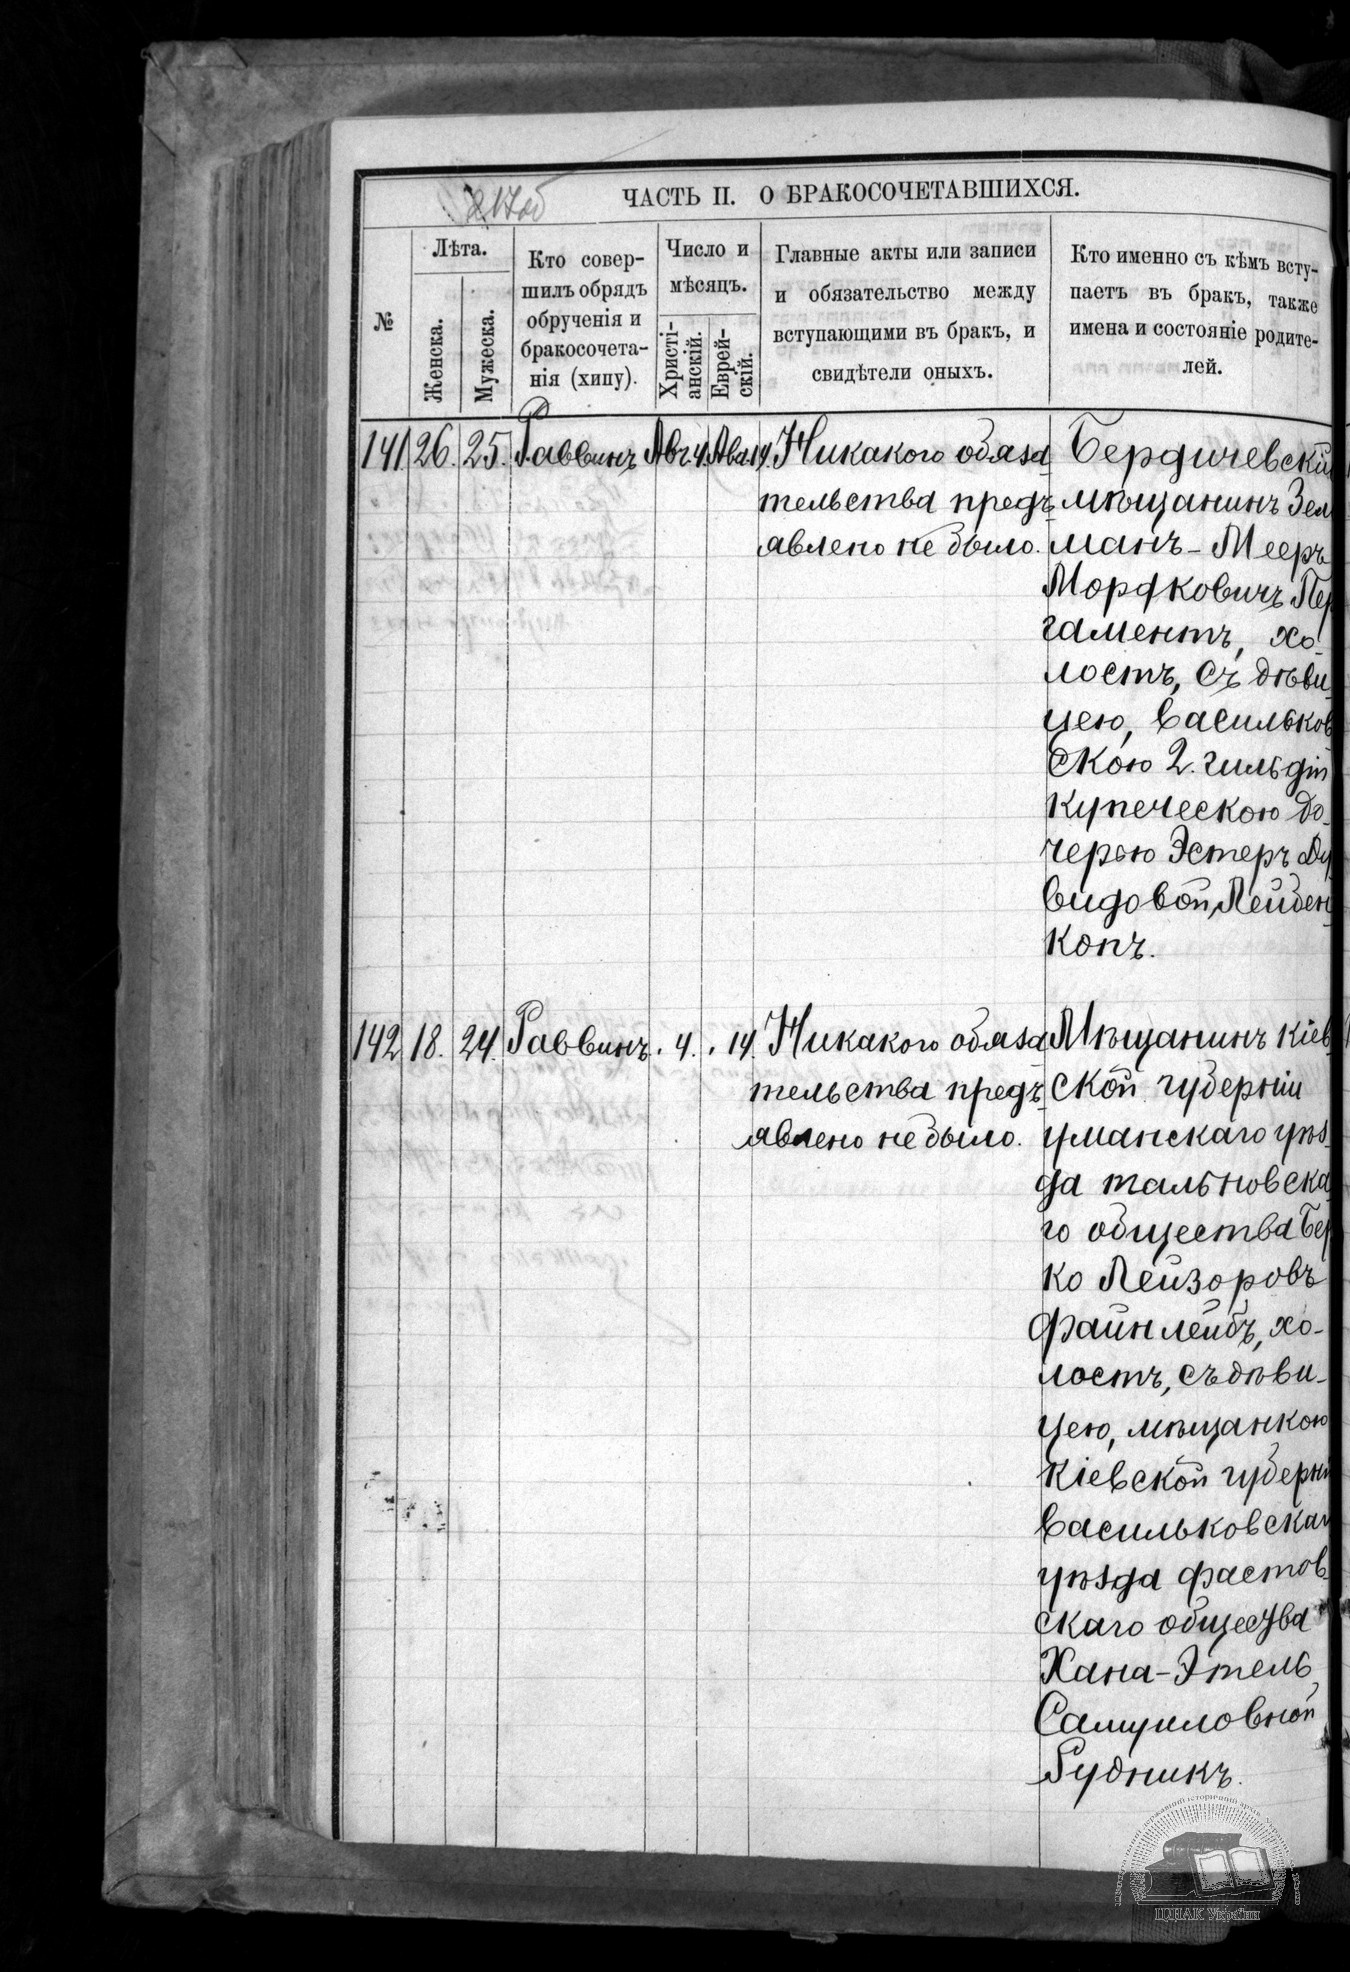 217об
ЧАСТЬ II. О БРАКОСОЧЕТАВШИХСЯ.
№
Лѣта.
Женска.
Мужеска.
Кто совер-
шилъ обрядъ
обрученія и
бракосочета-
нія (хипу).
Число и
мѣсяцъ.
Христі-
анскій.
Еврей-
скій.
Главные акты или записи
и обязательство между
вступающими въ бракъ, и
свидѣтели оныхъ.
Кто именно съ кѣмъ всту-
паетъ въ бракъ, также
имена и состояніе родите-
лей.
141 26. 25. Раввинъ Авг. 4. Ава 14. Никакого обяза
тельства предъ
явлено не было.
Бердичевскій
мѣщанинъ Зел
манъ-Мееръ
Мордковичъ Пер
гаментъ, хо-
лостъ, съ дѣви
цею, васильков
скою 2. гильдіи
купеческою до-
черью Эстеръ Ду
видовой Лейбен
копъ.
142 18. 24. Раввинъ. 4. 14. Никакого обяза
тельства предъ
явлено не было.
Мѣщанинъ кіев
ской губерніи
уманскаго уѣз
да тальновска
го общества Бер
ко Лейзоровъ
Файнлейбъ, хо-
лостъ, съ дѣви-
цею, мѣщанкою
кіевской губерні
васильковскаг
уѣзда фастов
скаго общества
Хана-Этель
Самуиловной
Рудникъ.
ЦДІАК України